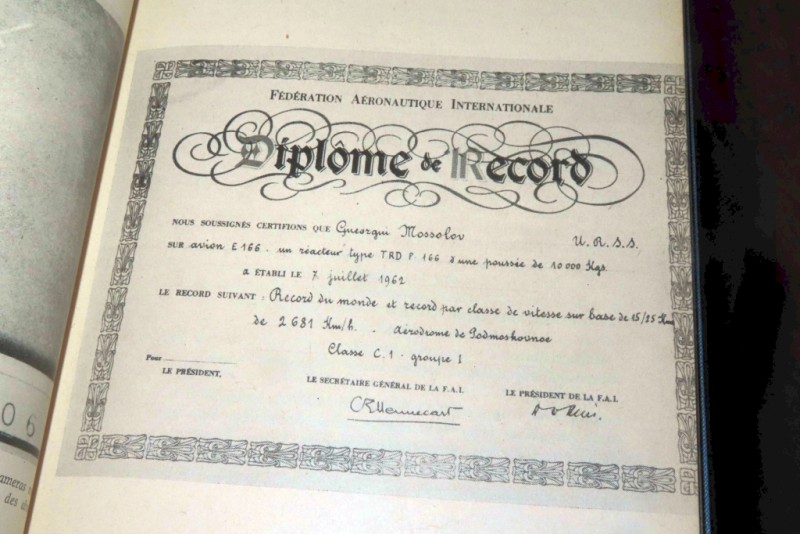 FÉDÉRATION AÉRONAUTIQUE INTERNATIONALE
Diplôme de Record
NOUS SOUSSIGNÉS CERTIFIONS QUE Gueorgui Mossolov U. R. S. S.
SUR avion E 166 - un réacteur type TRD P. 166 d'une poussée de 10 000 Kgs.
A ÉTABLI LE 7 juillet 1962
LE RECORD SUIVANT : Record du monde et record par classe de vitesse sur base de 15/25 Km
de 2 681 Km/h. - Aérodrome de Podmoskovnoe
Classe C.1 - groupe I
Pour
LE PRÉSIDENT,
LE SECRÉTAIRE GÉNÉRAL DE LA F.A.I.
LE PRÉSIDENT DE LA F.A.I.
06
des